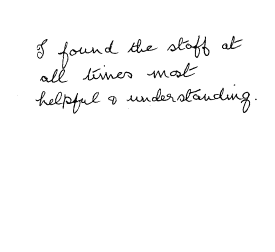 I found the staff at
all times most
helpful & understanding.